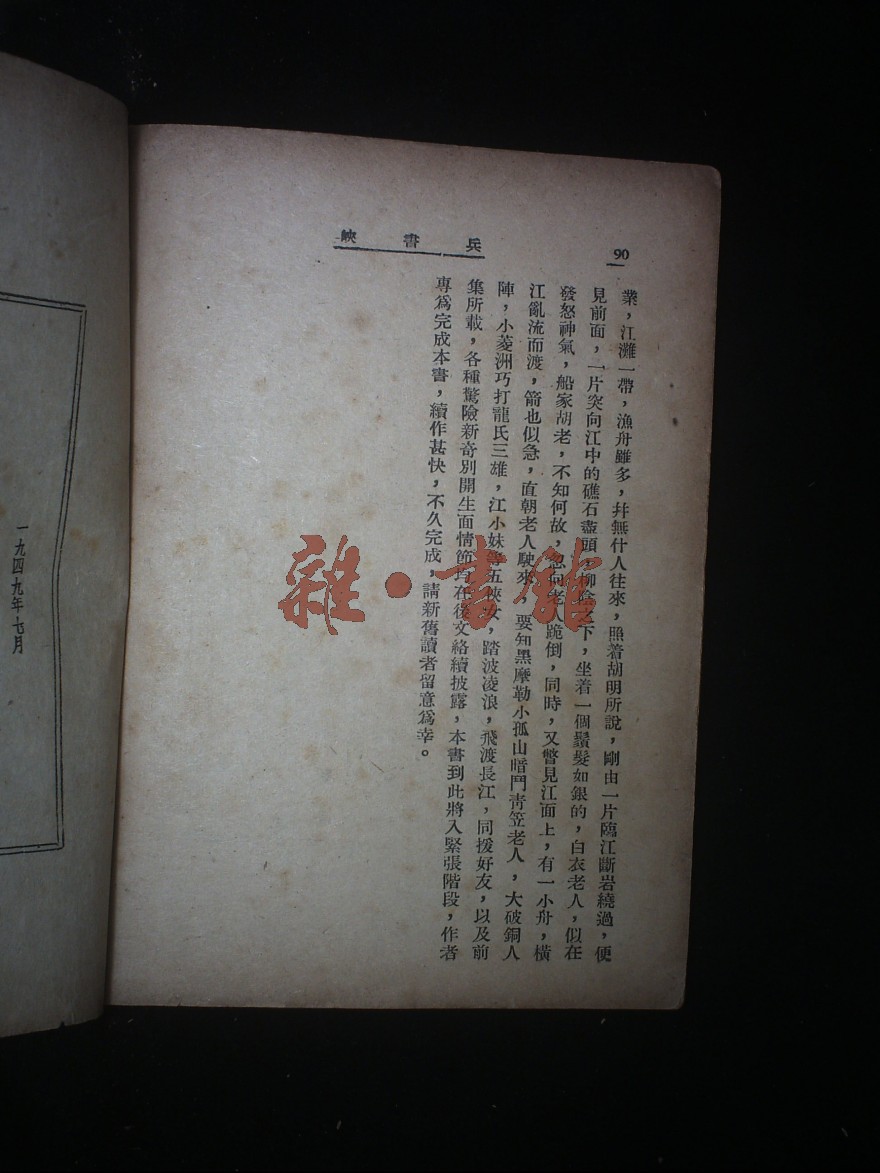 90
兵書峽
業，江灘一帶，漁舟雖多，幷無什人往來，照着胡明所說，剛由一片臨江斷岩繞過，便
見前面，一片突向江中的礁石盡頭，柳陰之下，坐着一個鬚髮如銀的，白衣老人，似在
發怒神氣，船家胡老，不知何故，忽向老人跪倒，同時，又瞥見江面上，有一小舟，橫
江亂流而渡，箭也似急，直朝老人駛來，要知黑摩勒小孤山暗鬥靑笠老人，大破銅人
陣，小菱洲巧打龍氏三雄，江小妹等五俠女，踏波凌浪，飛渡長江，同援好友，以及前
集所載，各種驚險新奇別開生面情節均在後文絡續披露，本書到此將入緊張階段，作者
專爲完成本書，續作甚快，不久完成，請新舊讀者留意爲幸。
一九四九年七月
雜·書館